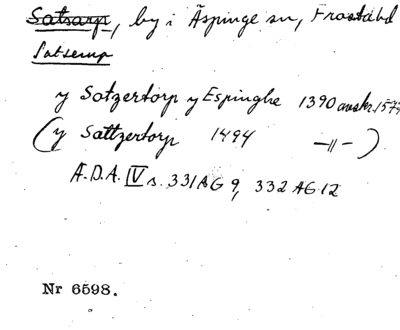 Satsarp, by i Äspinge sn, Frosta hd
Satserup
y Sotzertorp y Espinghe 1390 avskr. 15
(y Sattzertorp 1494 –〃–)
Æ.D.A. IV s. 331 AG 9, 332 AG 12
Nr 6598.